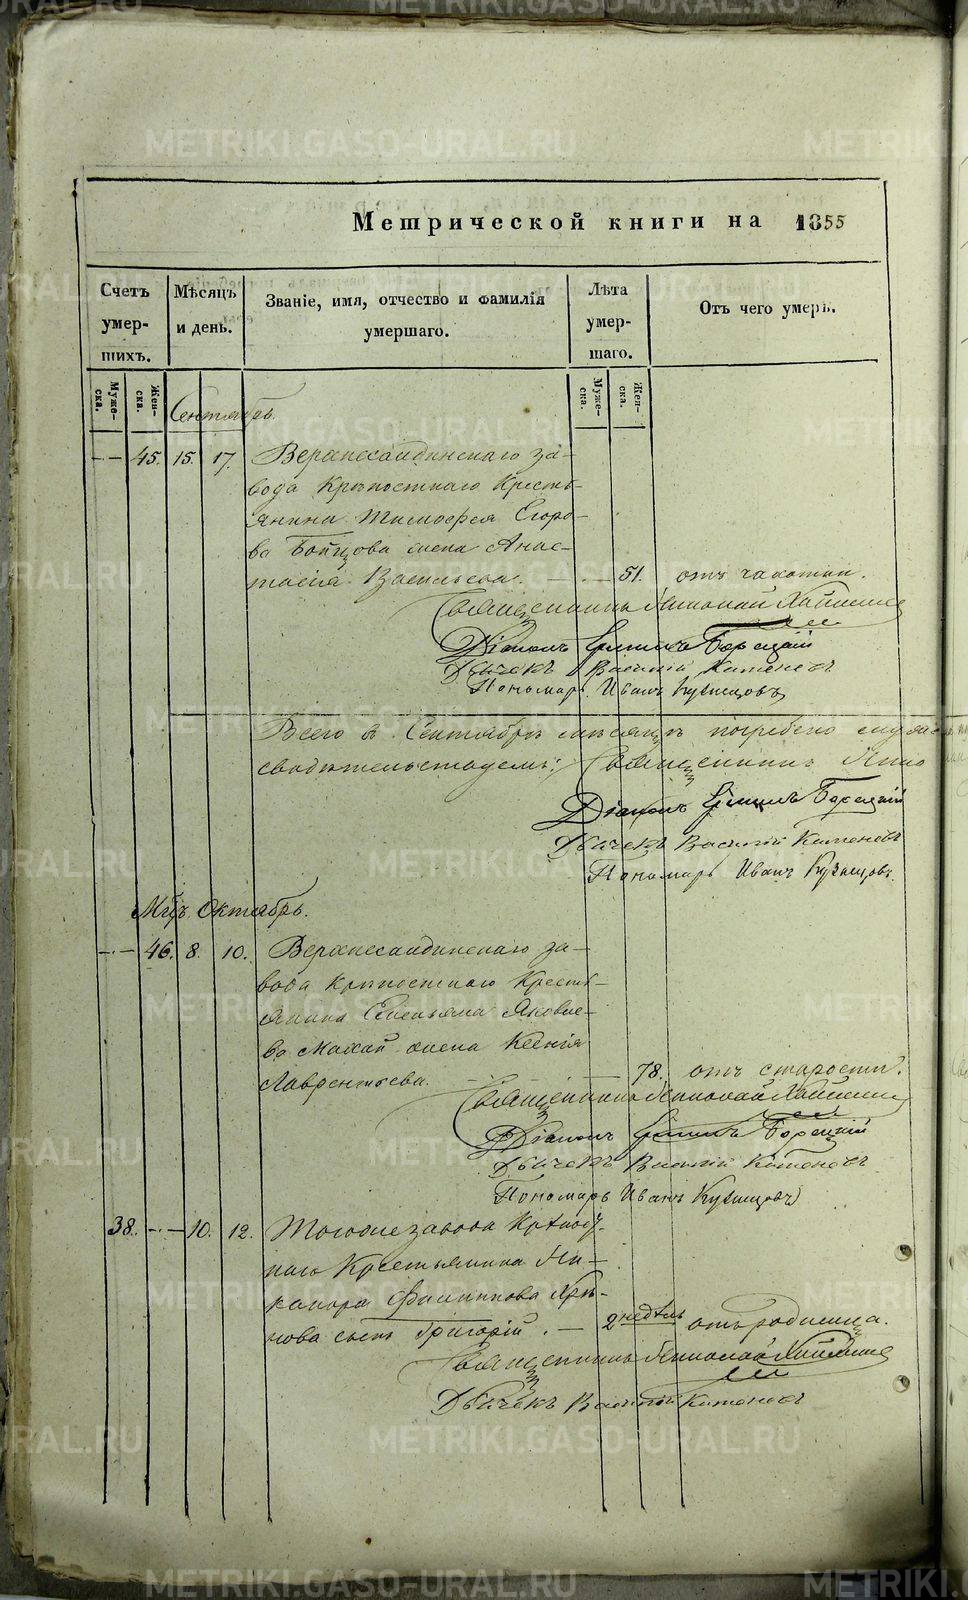 Метрической книги на 1855
Счетъ умер-шихъ.
Мѣсяцъ и день.
Званіе, имя, отчество и фамилія умершаго.
Лѣта умер-шаго.
Отъ чего умеръ.
Муже-ска.
Жен-ска.
Муже-ска.
Жен-ска.
Сентябрь.
45. 15. 17. Верхнесалдинскаго за-
вода Крѣпостнаго Кресть-
янина Тимофея Егоро-
ва Бойцова жена Анас-
тасія Васильева. 51. отъ чахотки.
Священникъ Николай
Діаконъ Борецкій
Дьячекъ Василій
Пономарь Иванъ Кузнецовъ
Всего въ Сентябрѣ мѣсяцѣ погребено
свидѣтельствуемъ: Священникъ Нико
Діаконъ Борецкій
Дьячекъ Василій
Пономарь Иванъ Кузнецовъ.
Мцъ Октябрь.
46. 8. 10. Верхнесалдинскаго за-
вода Крѣпостнаго Кресть-
янина Емельяна Яковле-
ва жена Ксенія
Лаврентьева. 78. отъ старости.
Священникъ Николай
Діаконъ Борецкій
Дьячекъ Василій
Пономарь Иванъ Кузнецовъ
38. 10. 12. Тогоже завода Крѣпост-
наго Крестьянина Ни-
канора Филиппова
сынъ Григорій. 2 недѣль отъ родимца.
Священникъ Николай
Дьячекъ Василій
METRIKI.GASO-URAL.RU